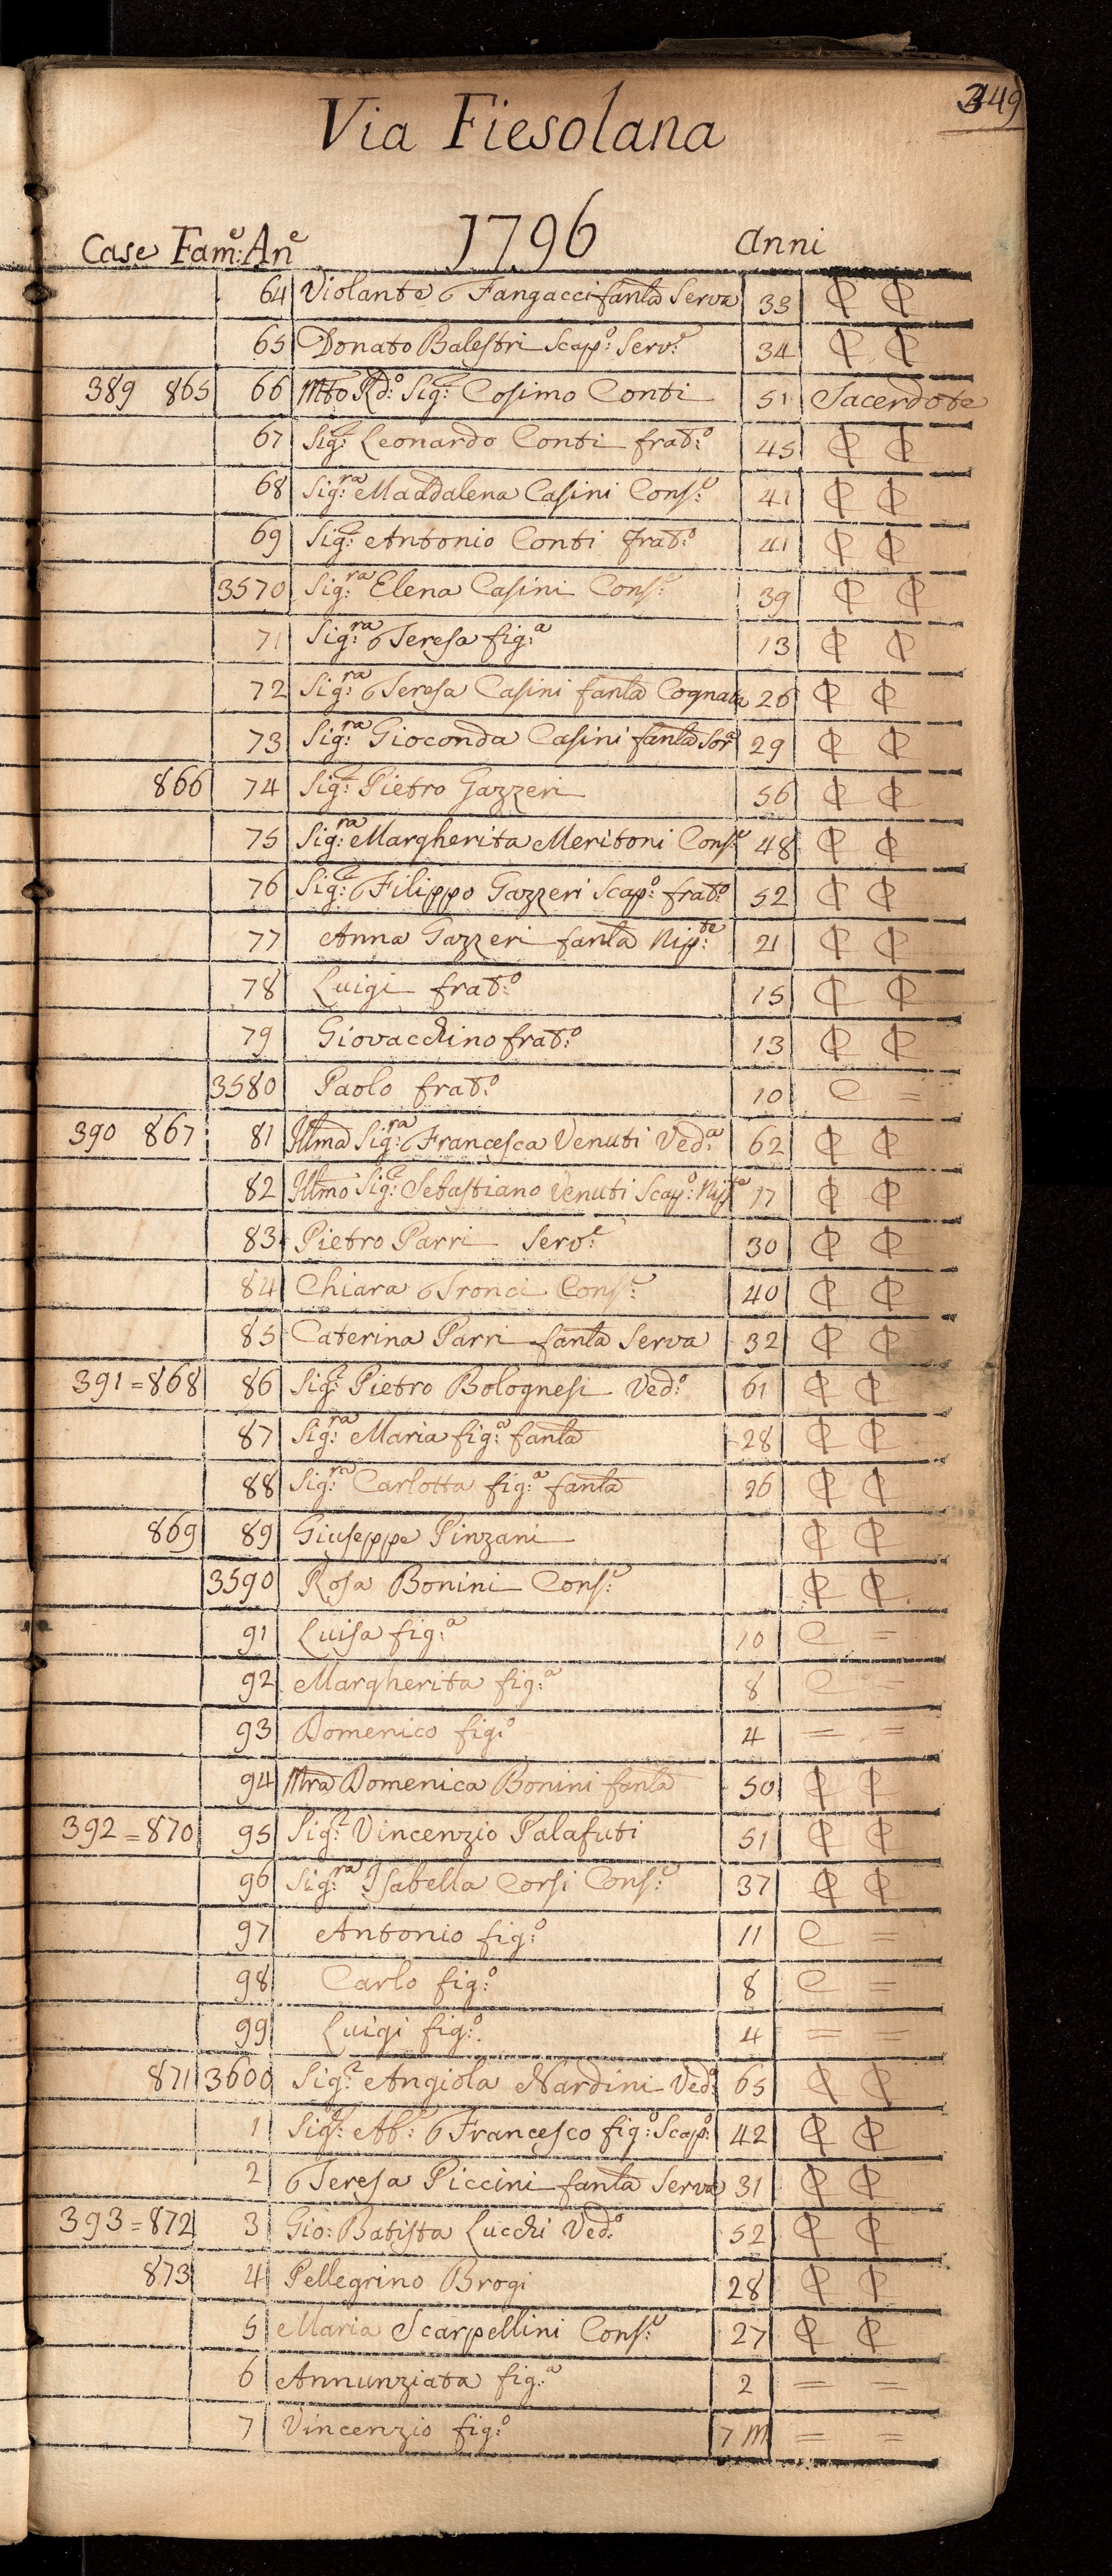 349
Via Fiesolana
Case Fam:e An:e 1796 Anni
64 Violante Fangacci fanla Serva 33 ₵ ₵
65 Donato Balestri Scap:o Serv:e 34 ₵ ₵
389 865 66 Mto Rd:o Sig:r Cosimo Conti 51 Sacerdote
67 Sig:r Leonardo Conti frat:o 45 ₵ ₵
68 Sig:ra Maddalena Casini Cons:e 41 ₵ ₵
69 Sig:r Antonio Conti frat:o 41 ₵ ₵
3570 Sig:ra Elena Casini Cons:e 39 ₵ ₵
71 Sig:ra Teresa fig:a 13 ₵ ₵
72 Sig:ra Teresa Casini fanla Cognata 26 ₵ ₵
73 Sig:ra Gioconda Casini fanla Sora 29 ₵ ₵
866 74 Sig:r Pietro Gazzeri 56 ₵ ₵
75 Sig:ra Margherita Meritoni Cons:e 48 ₵ ₵
76 Sig:r Filippo Gazzeri Scap:o frat:o 52 ₵ ₵
77 Anna Gazzeri fanla Nip:te 21 ₵ ₵
78 Luigi frat:o 15 ₵ ₵
79 Giovacchino frat:o 13 ₵ ₵
3580 Paolo frat:o 10 C =
390 867 81 Illma Sig:ra Francesca Venuti Ved:a 62 ₵ ₵
82 Illmo Sig:r Sebastiano Venuti Scap:o Nip:e 17 ₵ ₵
83 Pietro Parri Serv:e 30 ₵ ₵
84 Chiara Tronci Cons:e 40 ₵ ₵
85 Caterina Parri fanla Serva 32 ₵ ₵
391 = 868 86 Sig:r Pietro Bolognesi Ved:o 61 ₵ ₵
87 Sig:ra Maria fig:a fanla 28 ₵ ₵
88 Sig:ra Carlotta fig:a fanla 26 ₵ ₵
869 89 Giuseppe Pinzani ₵ ₵
3590 Rosa Bonini Cons:e ₵ ₵
91 Luisa fig:a 10 C =
92 Margherita fig:a 8 C =
93 Domenico fig:o 4 = =
94 Mra Domenica Bonini fanla 50 ₵ ₵
392 = 870 95 Sig:r Vincenzio Palafuti 51 ₵ ₵
96 Sig:ra Isabella Corsi Cons:e 37 ₵ ₵
97 Antonio fig:o 11 C =
98 Carlo fig:o 8 C =
99 Luigi fig:o 4 = =
871 3600 Sig:r Angiola Nardini Ved:a 65 ₵ ₵
1 Sig:r Ab:e Francesco fig:o Scap:o 42 ₵ ₵
2 Teresa Piccini fanla Serva 31 ₵ ₵
393 = 872 3 Gio: Batista Lucchi Ved:o 52 ₵ ₵
873 4 Pellegrino Brogi 28 ₵ ₵
5 Maria Scarpellini Cons:e 27 ₵ ₵
6 Annunziata fig:a 2 = =
7 Vincenzio fig:o 7 M = =